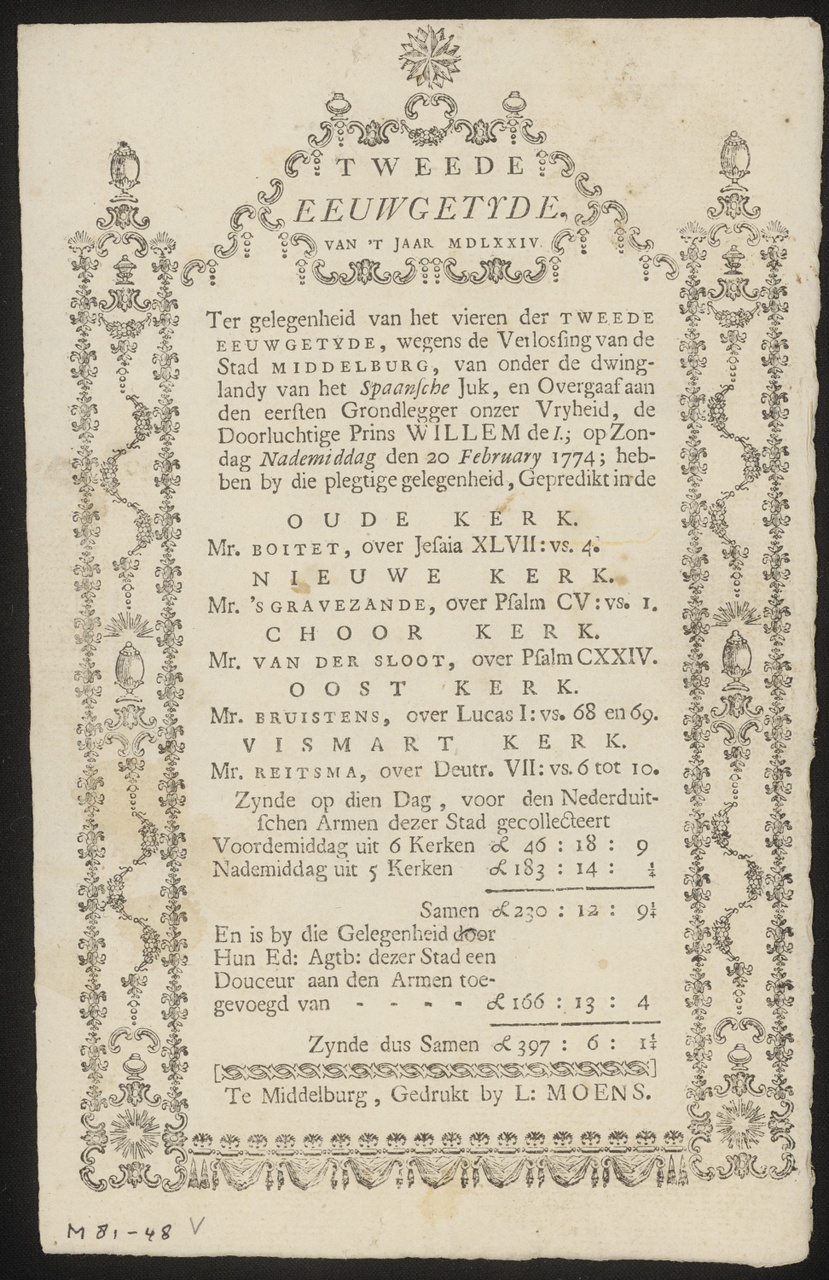 TWEEDE
EEUWGETYDE,
VAN 'T JAAR MDLXXIV.
Ter gelegenheid van het vieren der TWEEDE
EEUWGETYDE, wegens de Verlosſing van de
Stad MIDDELBURG, van onder de dwing-
landy van het Spaanſche Juk, en Overgaaf aan
den eerſten Grondlegger onzer Vryheid, de
Doorluchtige Prins WILLEM de I.; op Zon-
dag Nademiddag den 20 February 1774; heb-
ben by die plegtige gelegenheid, Gepredikt in de
OUDE KERK.
Mr. BOITET, over Jeſaia XLVII: vs. 4.
NIEUWE KERK.
Mr. 'SGRAVEZANDE, over Pſalm CV: vs. 1.
CHOOR KERK.
Mr. VAN DER SLOOT, over Pſalm CXXIV.
OOST KERK.
Mr. BRUISTENS, over Lucas I: vs. 68 en 69.
VISMART KERK.
Mr. REITSMA, over Deutr. VII: vs. 6 tot 10.
Zynde op dien Dag, voor den Nederduit-
ſchen Armen dezer Stad gecollecteert
Voordemiddag uit 6 Kerken ₤ 46 : 18 : 9
Nademiddag uit 5 Kerken ₤ 183 : 14 : ¼
Samen ₤ 230 : 12 : 9¼
En is by die Gelegenheid door
Hun Ed: Agtb: dezer Stad een
Douceur aan den Armen toe-
gevoegd van - - - - ₤ 166 : 13 : 4
Zynde dus Samen ₤ 397 : 6 : 1¼
Te Middelburg, Gedrukt by L: MOENS.
M 81-48 V